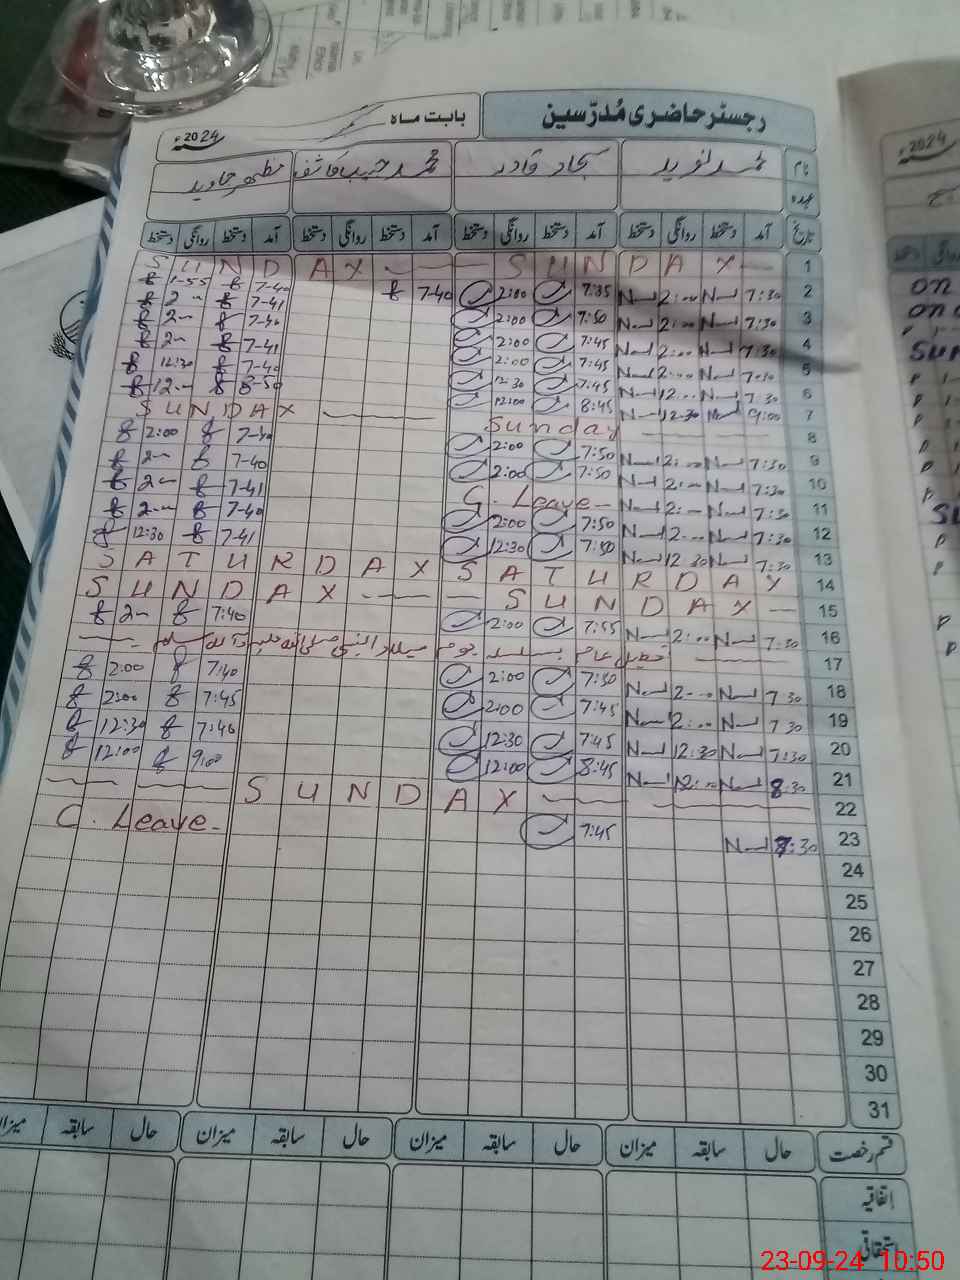 رجسٹر حاضری مُدرّسین
بابت ماہ
2024ء
نام محمد نوید سجاد قادر محمد حبیب کاشف مظہر جاوید
عہدہ
تاریخ آمد دستخط روانگی دستخط آمد دستخط روانگی دستخط آمد دستخط روانگی دستخط آمد دستخط روانگی دستخط
SUNDAY SUNDAY 1
1-55 7-40 7-40 2:00 7:35 2:00 7:30 2
2 7-41 2:00 7:50 2:00 7:30 3
2 7-40 2:00 7:45 2:00 7:30 4
2 7-41 2:00 7:45 2:00 7:30 5
12:30 7-40 12:30 7:45 12:00 7:30 6
12 8-50 12:00 8:45 12-30 9:00 7
SUNDAY Sunday 8
2:00 7-40 2:00 7:50 2:00 7:30 9
2 7-40 2:00 7:50 2:00 7:30 10
2 7-41 C. Leave 2:00 7:30 11
2 7-40 2:00 7:50 2:00 7:30 12
12:30 7-41 12:30 7:50 12 30 7:30 13
SATURDAY SATURDAY 14
SUNDAY SUNDAY 15
2 7:40 2:00 7:55 2:00 7:30 16
تعطیل عام بسلسلہ یوم میلاد النبی صلی اللہ علیہ و آلہ وسلم 17
2:00 7:40 2:00 7:50 2:00 7 30 18
2:00 7:45 2:00 7:45 2:00 7 30 19
12:30 7:40 12:30 7:45 12:30 7:30 20
12:00 9:00 12:00 8:45 12:00 8:30 21
SUNDAY 22
C. Leave 7:45 7:30 23
24
25
26
27
28
29
30
31
قسم رخصت حال سابقہ میزان حال سابقہ میزان حال سابقہ میزان حال سابقہ میزان
اتفاقیہ
استحقاقی
2024ء
on
on
Sun
23-09-24 10:50